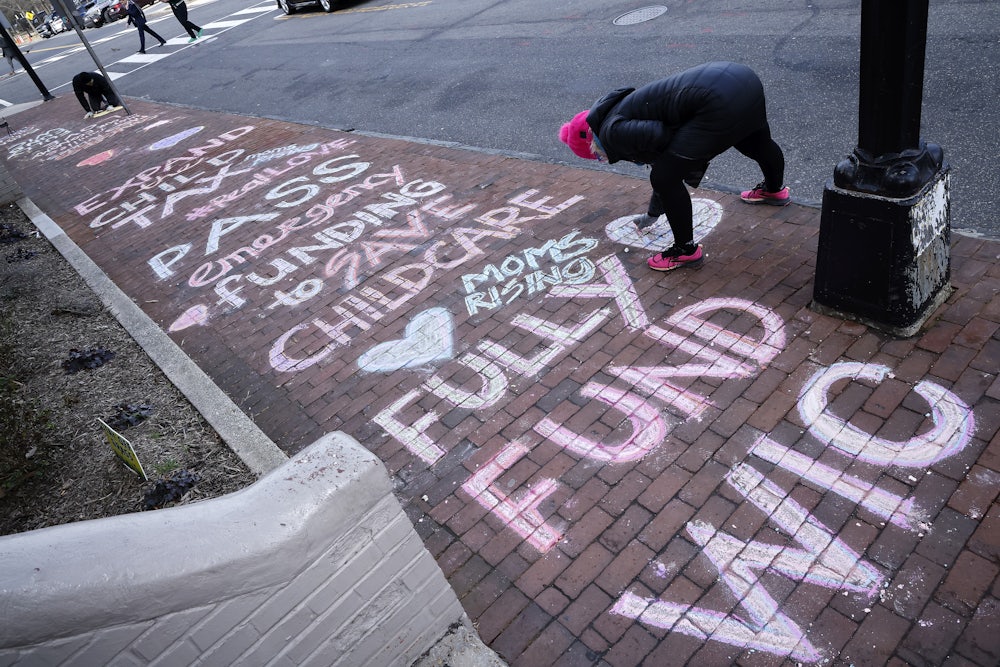 EXPAND
CHILD
TAX
#ReallyLOVE
PASS
emergency
FUNDING
to SAVE
CHILDCARE
MOMS
RISING
FULLY
FUND
WIC